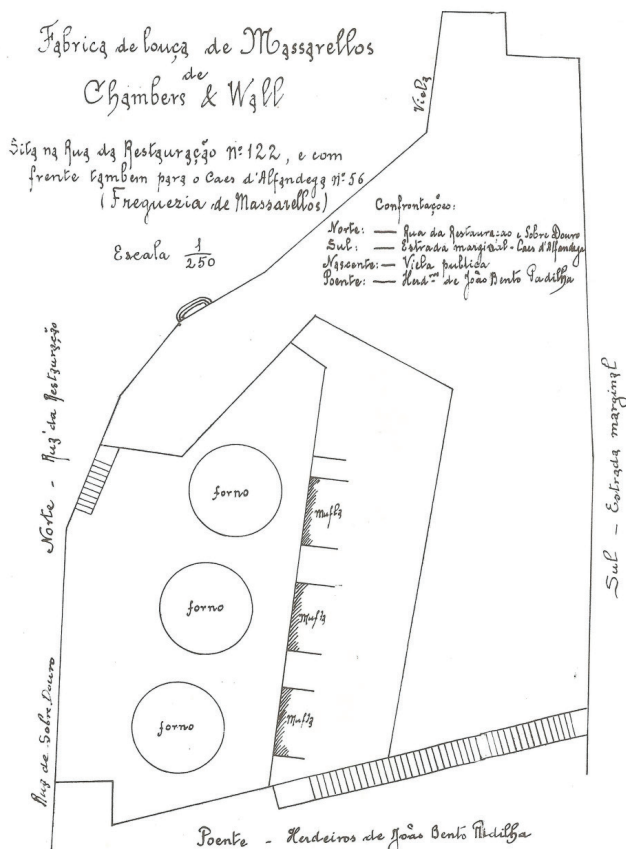 Fabrica de louça de Massarellos
de
Chambers & Wall
Sita na Rua da Restauração nº 122, e com
frente tambem para o Caes d'Alfandega nº 56
(Freguezia de Massarellos)
Escala 1/250
Viela
Confrontações:
Norte: — Rua da Restauração e Sobre Douro
Sul: — Estrada marginal - Caes d'Alfandega
Nascente: — Viela publica
Poente: — Herd.ros de João Bento Padilha
Norte - Rua da Restauração
Rua de Sobre Douro
Sul - Estrada marginal
forno
Mufla
forno
Mufla
forno
Mufla
Poente - Herdeiros de João Bento Padilha